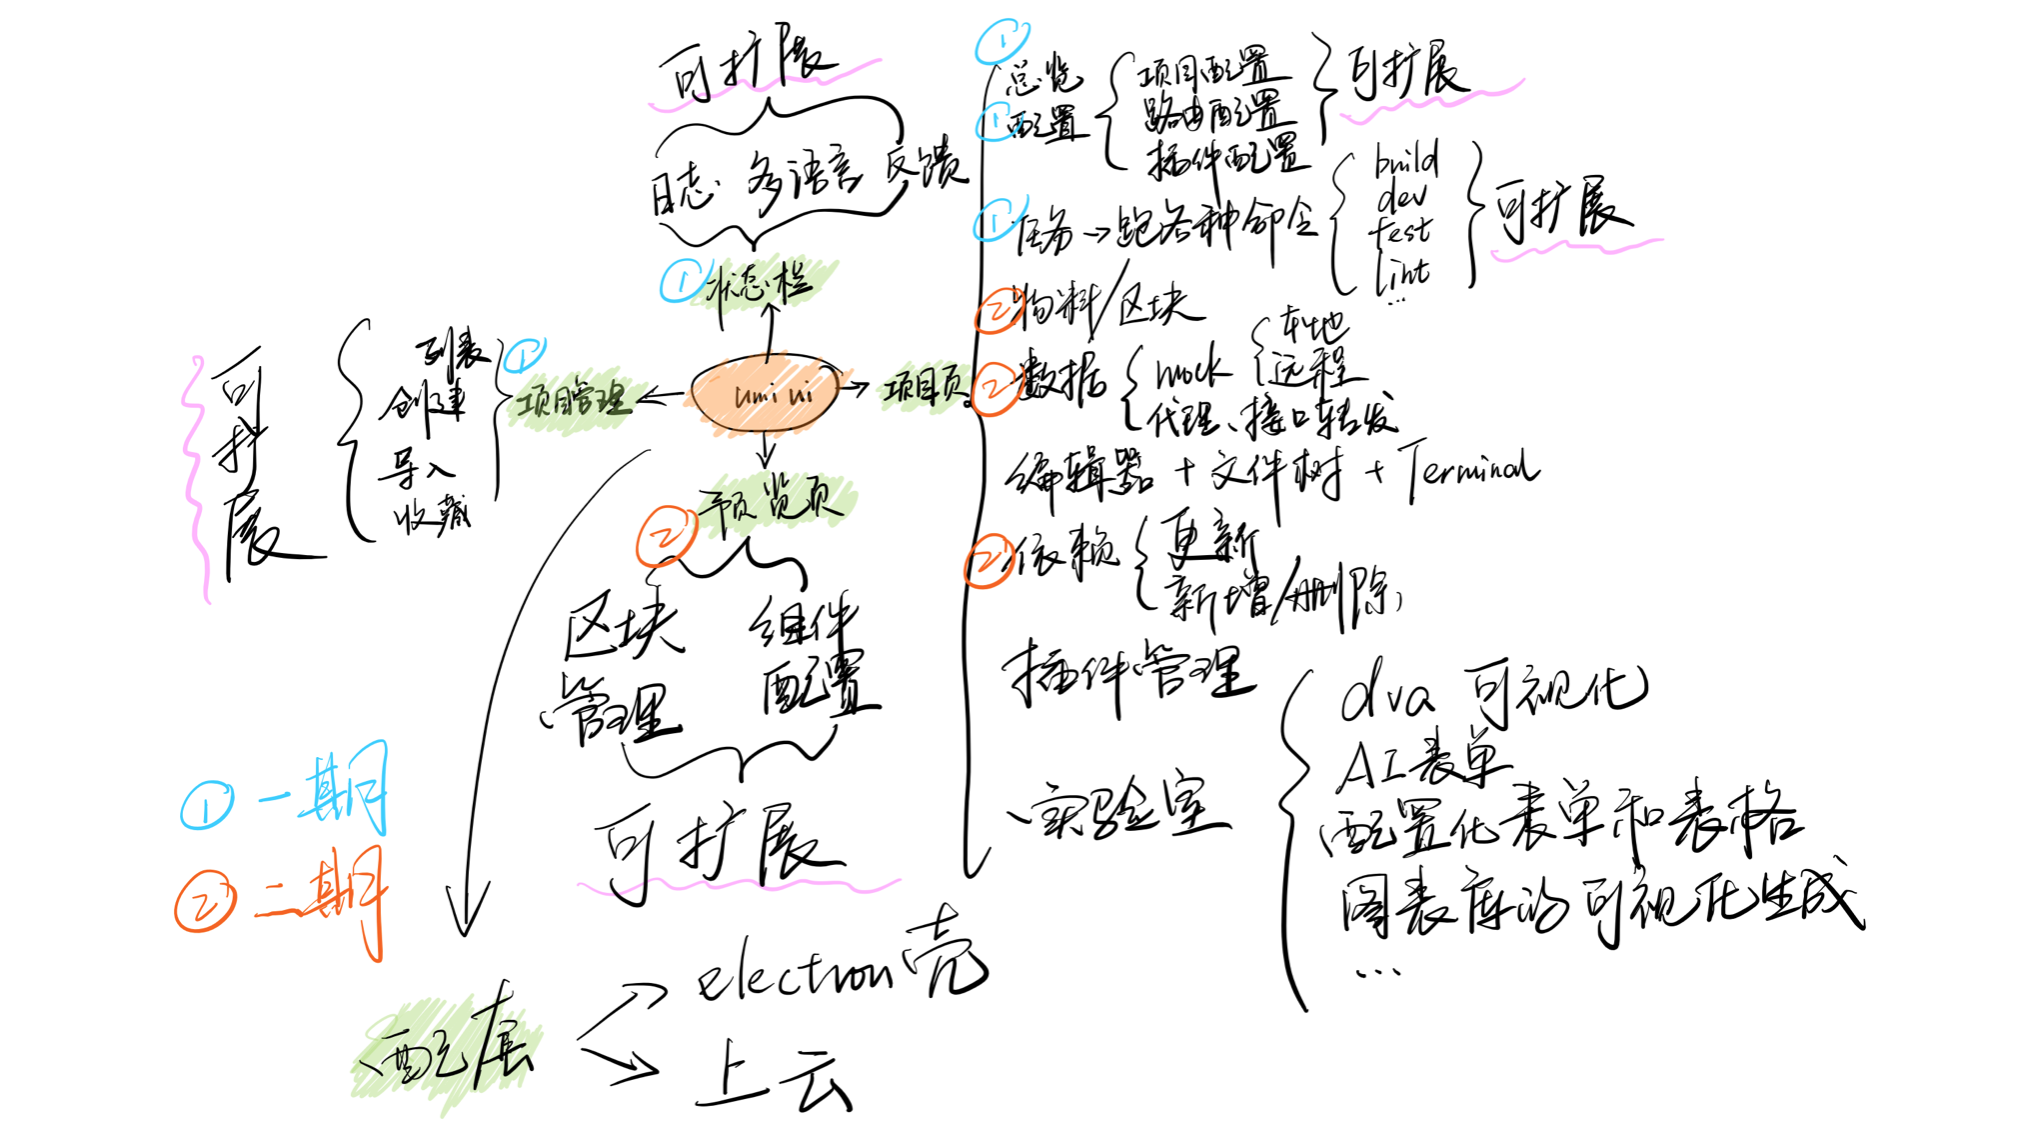 可扩展
日志、多语言 反馈
① 状态栏
umi ui
① 项目管理
列表
创建
导入
收藏
可扩展
② 预览页
区块管理
组件配置
可扩展
项目页
① 总览
① 配置
项目配置
路由配置
插件配置
可扩展
① 任务→跑各种命令
build
dev
test
lint
...
可扩展
② 物料/区块
② 数据
mock
本地
远程
代理、接口转发
编辑器 + 文件树 + Terminal
② 依赖
更新
新增/删除
插件管理
实验室
dva 可视化
AI表单
配置化表单和表格
图表库的可视化生成
...
① 一期
② 二期
electron壳
上云